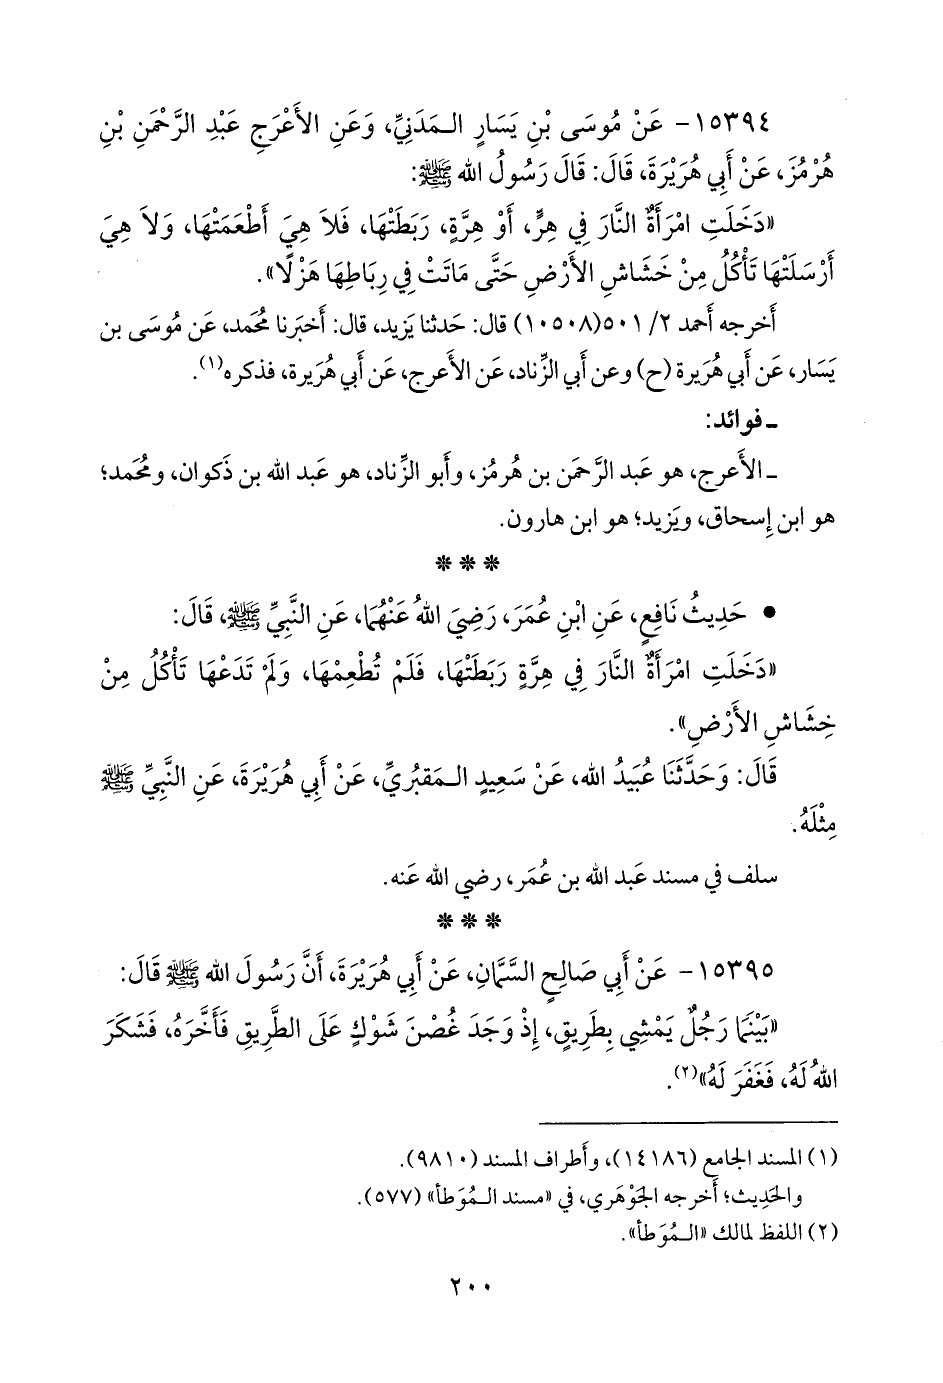 ١٥٣٩٤- عَنْ مُوسَى بْنِ يَسَارٍ الـمَدَنِيِّ، وَعَنِ الأَعْرَجِ عَبْدِ الرَّحْمَنِ بْنِ
هُرْمُزَ، عَنْ أَبِي هُرَيْرَةَ، قَالَ: قَالَ رَسُولُ الله ﷺ:
«دَخَلَتِ امْرَأَةٌ النَّارَ فِي هِرٍّ، أَوْ هِرَّةٍ، رَبَطَتْهَا، فَلاَ هِيَ أَطْعَمَتْهَا، وَلاَ هِيَ
أَرْسَلَتْهَا تَأْكُلُ مِنْ خَشَاشِ الأَرْضِ حَتَّى مَاتَتْ فِي رِبَاطِهَا هَزْلًا».
أَخرجه أَحمد ٢/ ٥٠١(١٠٥٠٨) قال: حَدثنا يَزيد، قال: أَخبَرنا مُحمد، عَن مُوسَى بن
يَسَار، عَن أَبي هُرَيرة (ح) وعن أَبي الزِّناد، عَن الأَعرج، عَن أَبي هُرَيرة، فذكره(١).
ـ فوائد:
ـ الأَعرج، هو عَبد الرَّحمَن بن هُرمُز، وأَبو الزِّناد، هو عَبد الله بن ذَكوان، ومُحَمد؛
هو ابن إِسحاق، ويَزيد؛ هو ابن هارون.
* * *
• حَدِيثُ نَافِعٍ، عَنِ ابْنِ عُمَرَ، رَضِيَ اللهُ عَنْهُمَا، عَنِ النَّبِيِّ ﷺ، قَالَ:
«دَخَلَتِ امْرَأَةٌ النَّارَ فِي هِرَّةٍ رَبَطَتْهَا، فَلَمْ تُطْعِمْهَا، وَلَمْ تَدَعْهَا تَأْكُلُ مِنْ
خِشَاشِ الأَرْضِ».
قَالَ: وَحَدَّثَنَا عُبَيدُ الله، عَنْ سَعِيدٍ الـمَقبُريِّ، عَنْ أَبِي هُرَيْرَةَ، عَنِ النَّبِيِّ ﷺ
مِثْلَهُ.
سلف في مسند عَبد الله بن عُمَر، رضي الله عَنه.
* * *
١٥٣٩٥- عَنْ أَبِي صَالِحٍ السَّمَّانِ، عَنْ أَبِي هُرَيْرَةَ، أَنَّ رَسُولَ الله ﷺ قَالَ:
«بَيْنَمَا رَجُلٌ يَمْشِي بِطَرِيقٍ، إِذْ وَجَدَ غُصْنَ شَوْكٍ عَلَى الطَّرِيقِ فَأَخَّرَهُ، فَشَكَرَ
اللهُ لَهُ، فَغَفَرَ لَهُ»(٢).
(١) المسند الجامع (١٤١٨٦)، وأَطراف المسند (٩٨١٠).
والحَدِيث؛ أَخرجه الجَوْهَري، في «مسند الـمُوَطأ» (٥٧٧).
(٢) اللفظ لمالك «الـمُوَطأ».
٢٠٠